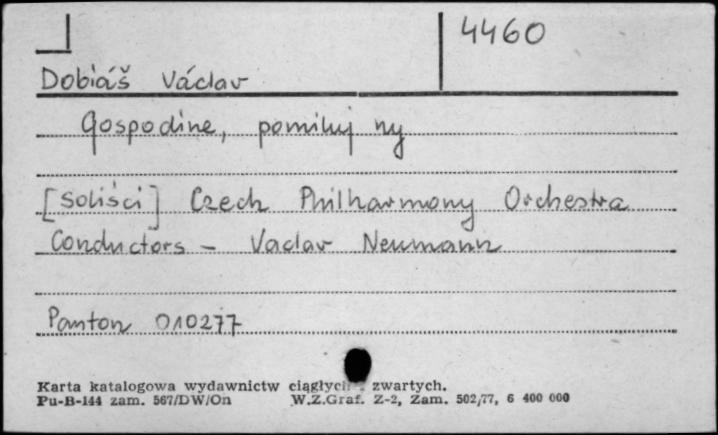 4460
Dobiáš Václav
Gospodine, pomiluj ny
[soliści] Czech Philharmony Orchestra
Conductors – Vaclav Neumann
Panton 010277
Karta katalogowa wydawnictw ciągłych i zwartych.
Pu-B-144 zam. 567/DW/On W.Z.Graf. Z-2, Zam. 502/77, 6 400 000